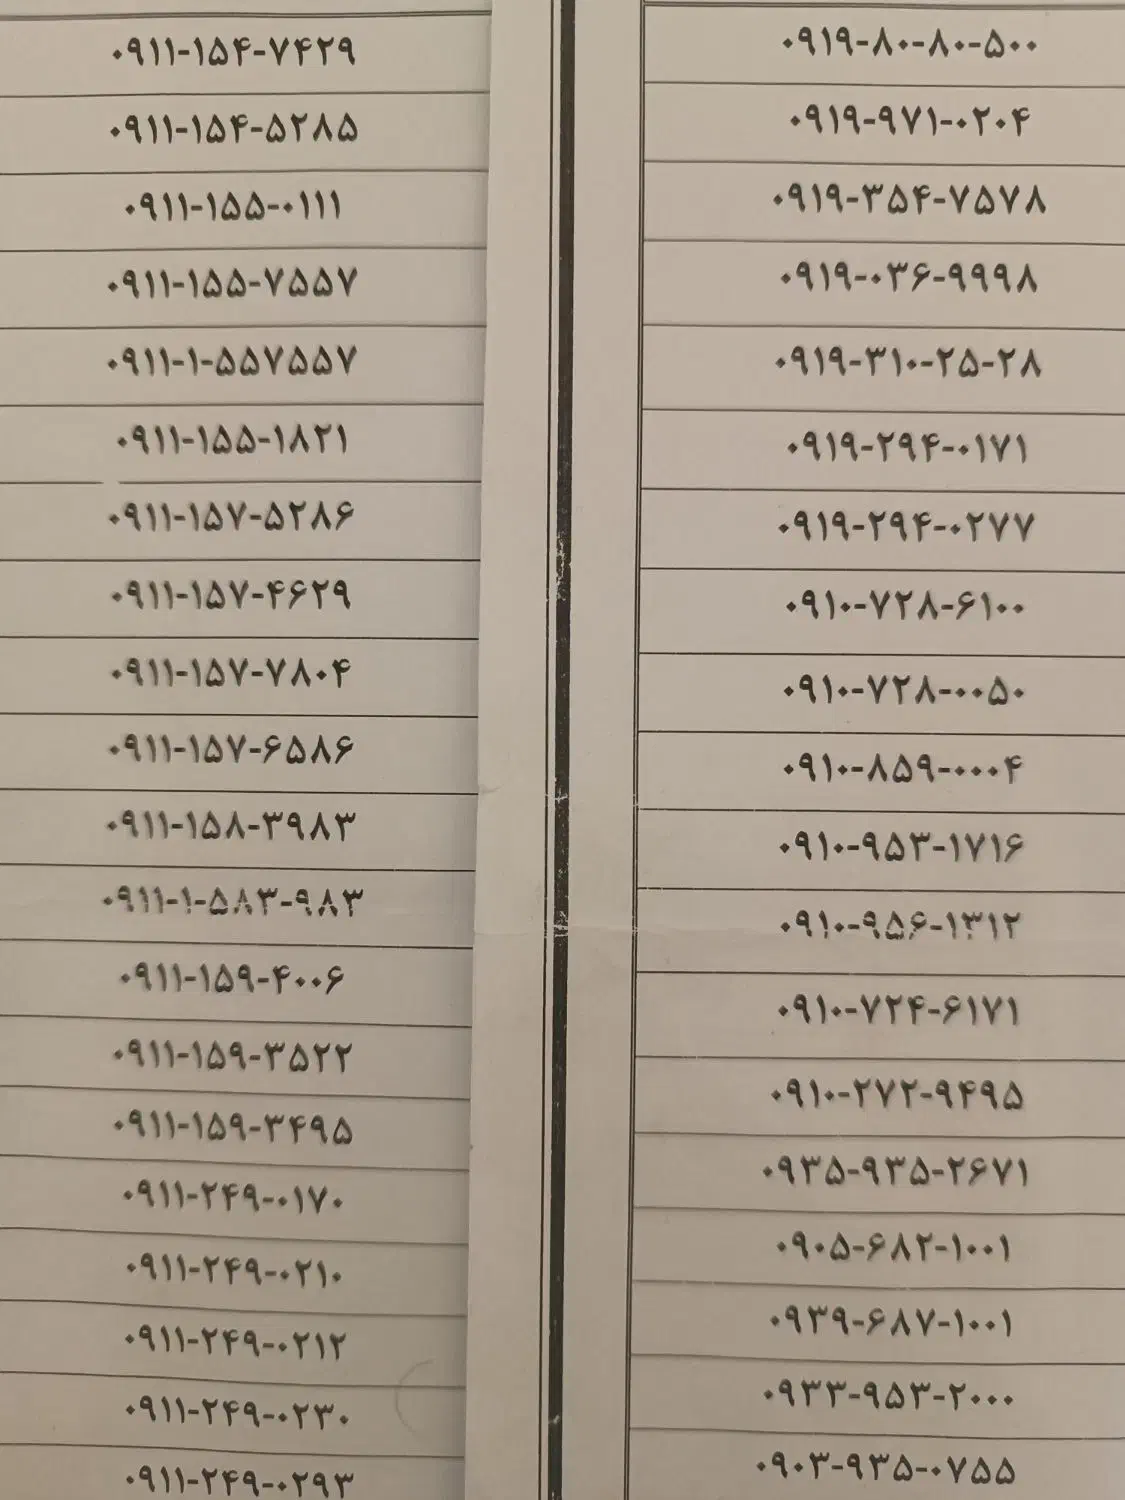 ۰۹۱۱-۱۵۴-۷۴۲۹
۰۹۱۱-۱۵۴-۵۲۸۵
۰۹۱۱-۱۵۵-۰۱۱۱
۰۹۱۱-۱۵۵-۷۵۵۷
۰۹۱۱-۱-۵۵۷۵۵۷
۰۹۱۱-۱۵۵-۱۸۲۱
۰۹۱۱-۱۵۷-۵۲۸۶
۰۹۱۱-۱۵۷-۴۶۲۹
۰۹۱۱-۱۵۷-۷۸۰۴
۰۹۱۱-۱۵۷-۶۵۸۶
۰۹۱۱-۱۵۸-۳۹۸۳
۰۹۱۱-۱-۵۸۳-۹۸۳
۰۹۱۱-۱۵۹-۴۰۰۶
۰۹۱۱-۱۵۹-۳۵۲۲
۰۹۱۱-۱۵۹-۳۴۹۵
۰۹۱۱-۲۴۹-۰۱۷۰
۰۹۱۱-۲۴۹-۰۲۱۰
۰۹۱۱-۲۴۹-۰۲۱۲
۰۹۱۱-۲۴۹-۰۲۳۰
۰۹۱۱-۲۴۹-۰۲۹۳
۰۹۱۹-۸۰-۸۰-۵۰۰
۰۹۱۹-۹۷۱-۰۲۰۴
۰۹۱۹-۳۵۴-۷۵۷۸
۰۹۱۹-۰۳۶-۹۹۹۸
۰۹۱۹-۳۱۰-۲۵-۲۸
۰۹۱۹-۲۹۴-۰۱۷۱
۰۹۱۹-۲۹۴-۰۲۷۷
۰۹۱۰-۷۲۸-۶۱۰۰
۰۹۱۰-۷۲۸-۰۰۵۰
۰۹۱۰-۸۵۹-۰۰۰۴
۰۹۱۰-۹۵۳-۱۷۱۶
۰۹۱۰-۹۵۶-۱۳۱۲
۰۹۱۰-۷۲۴-۶۱۷۱
۰۹۱۰-۲۷۲-۹۴۹۵
۰۹۳۵-۹۳۵-۲۶۷۱
۰۹۰۵-۶۸۲-۱۰۰۱
۰۹۳۹-۶۸۷-۱۰۰۱
۰۹۳۳-۹۵۳-۲۰۰۰
۰۹۰۳-۹۳۵-۰۷۵۵